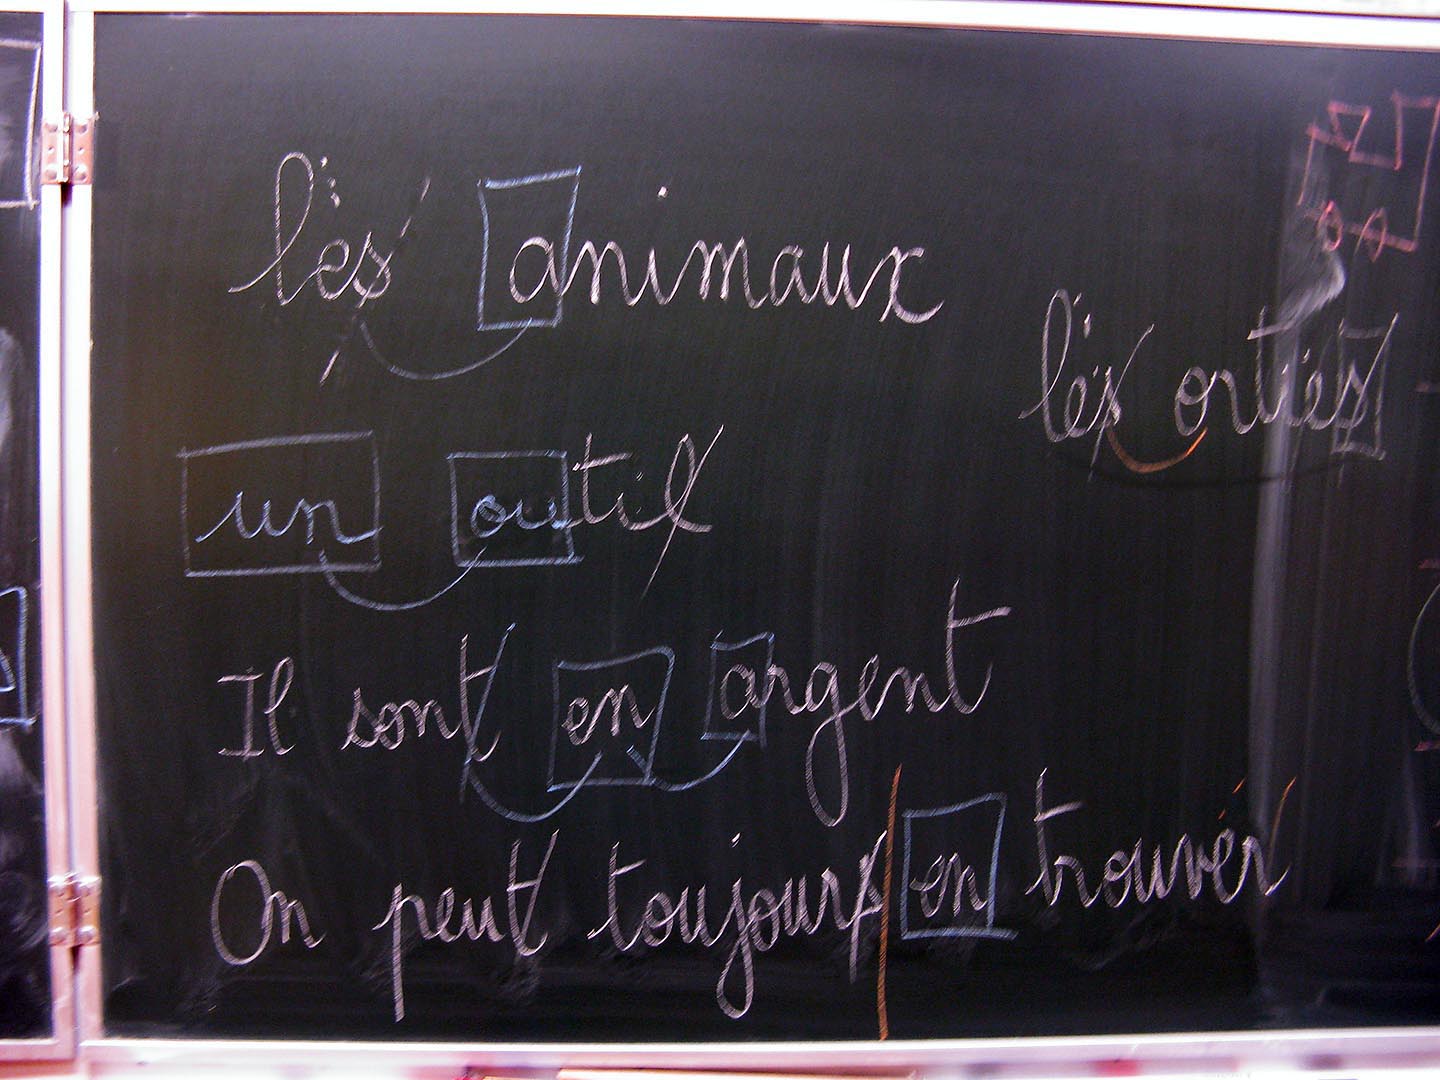 les animaux
les orties
un outil
Il sont en argent
On peut toujours en trouver